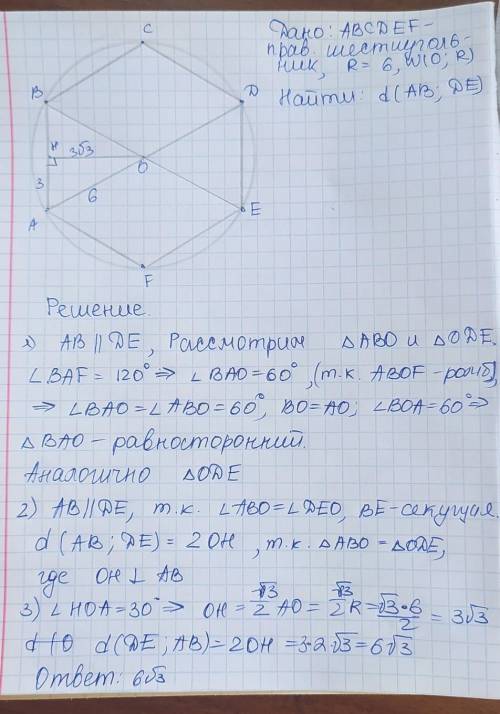 Дано: ABCDEF –
прав. шестиуголь-
ник, R = 6, W(O; R)
Найти: d(AB; DE)
C
B
D
H
3√3
O
3
6
A
E
F
Решение.
1) AB || DE, Рассмотрим △ABO и △ODE.
∠BAF = 120° ⇒ ∠BAO = 60°, (т.к. ABOF – ромб)
⇒ ∠BAO = ∠ABO = 60°, BO = AO; ∠BOA = 60° ⇒
△BAO – равносторонний.
Аналогично △ODE
2) AB || DE, т.к. ∠ABO = ∠DEO, BE – секущая.
d (AB; DE) = 2OH, т.к. △ABO = △ODE,
где OH ⊥ AB
3) ∠HOA = 30° ⇒ OH = √3/2 AO = √3/2 R = √3·6/2 = 3√3
d(DE; AB) = 2OH = 3·2√3 = 6√3
Ответ: 6√3